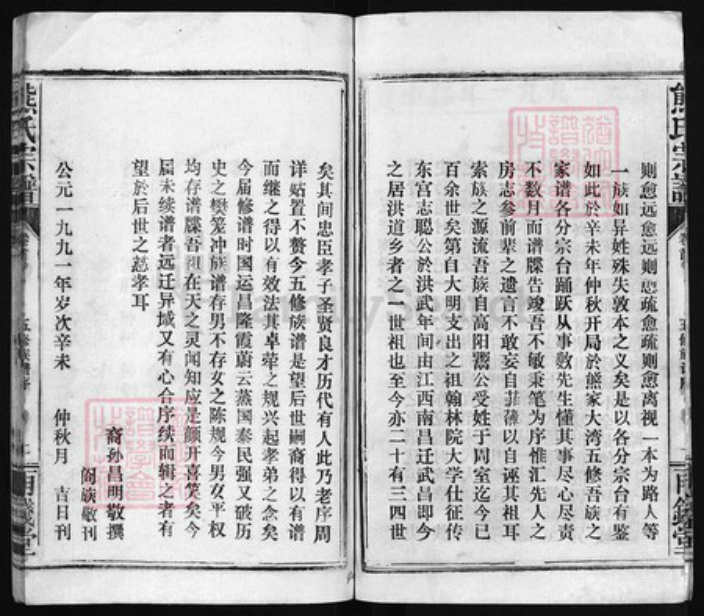 熊氏宗譜
卷首
五修族谱序
则愈远愈远则愈疏愈疏则愈离视一本为路人等
一族如异姓殊失敦本之义矣是以各分宗台有鉴
如此於辛未年仲秋开局於熊家大湾五修吾族之
家谱各分宗台踊跃从事数先生懂其事尽心尽责
不数月而谱牒告竣吾不敏秉笔为序惟汇先人之
房志参前辈之遗言不敢妄自菲薄以自诬其祖耳
索族之源流吾族自高阳鬻公受姓于周室迄今已
百余世矣第自大明支出之祖翰林院大学仕征传
东宫志聪公於洪武年间由江西南昌迁武昌即今
之居洪道乡者之一世祖也至今亦二十有三四世
矣其间忠臣孝子圣贤良才历代有人此乃老序周
详姑置不赘今五修族谱是望后世嗣裔得以有谱
而继之得以有效法其卓荦之规兴起孝弟之念矣
今届修谱时国运昌隆霞蔚云蒸国泰民强又破历
史之樊笼冲族谱存男不存女之陈规今男女平权
均存谱牒吾祖在天之灵闻知应是颜开喜笑矣今
届未续谱者远迁异域又有心合序续而辑之者有
望於后世之慈孝耳
裔孙昌明敬撰
阖族敬刊
公元一九九一年岁次辛未 仲秋月 吉日刊
熊氏宗譜
五修族谱序